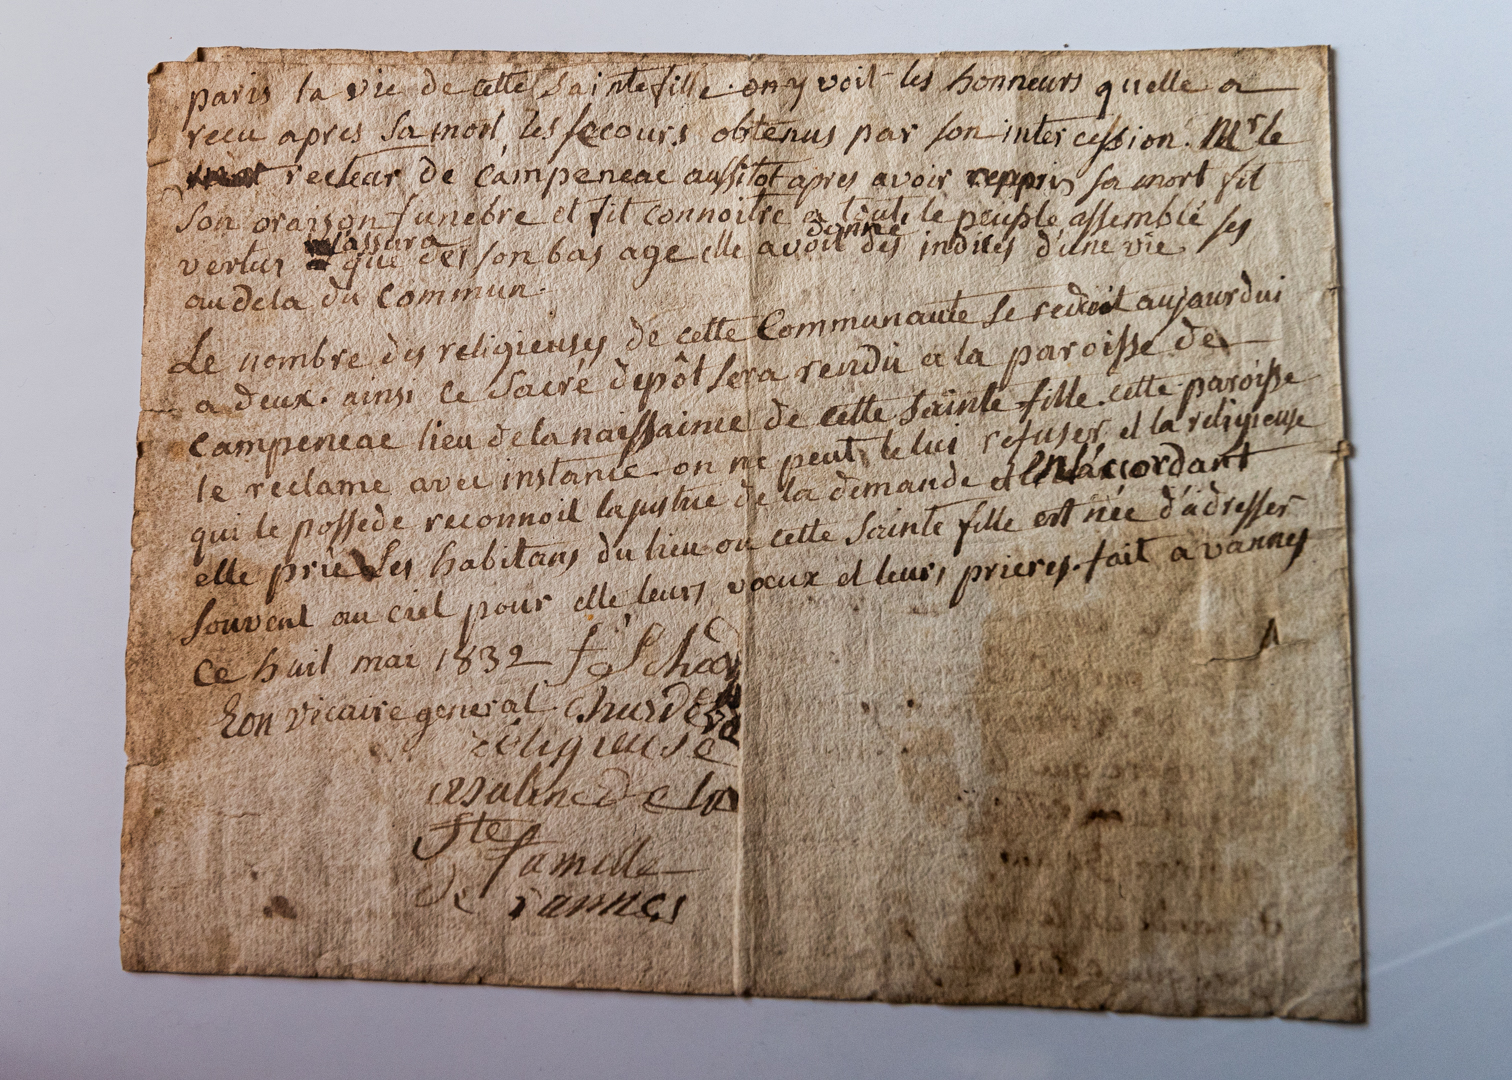 paris la vie de cette Sainte fille. on y voit les honneurs quelle a
recu apres Sa mort, les secours obtenus par son intercession. Mr le
recteur de campeneac aussitot apres avoir reppris Sa mort fit
Son oraison funebre et fit connoitre a toute le peuple assemblé ses
vertus assura que des son bas age elle avoit donné des indices d'une vie
au dela du commun.
Le nombre des religieuses de cette Communauté se reduit aujourdui
a deux. ainsi ce Sacré depôt sera rendu a la paroisse de
campeneac lieu de la naissaince de cette Sainte fille. cette paroisse
le reclame avec instance. on ne peut le lui refuser, et la religieuse
qui le possede reconnoit la justice de la demande et en l'accordant
elle prie Les habitans du lieu ou cette Sainte fille est née d'adresser
souvent au ciel pour elle leurs voeux et leurs prieres. fait a vannes
ce huit mai 1832
vicaire general.
religieuse
ursuline de la
Ste
famille
de vannes